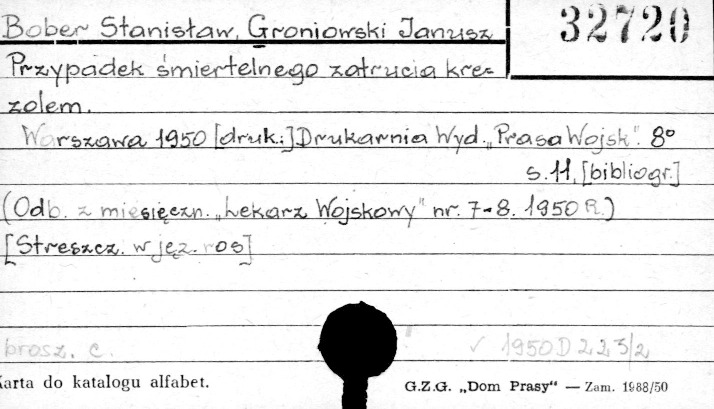 Bober Stanisław, Groniowski Janusz
32720
Przypadek śmiertelnego zatrucia kre=
zolem.
Warszawa 1950 [druk.:] Drukarnia Wyd. „Prasa Wojsk". 8°
s. 11, [bibliogr.]
(Odb. z miesięczn. „Lekarz Wojskowy" nr. 7-8. 1950 R.)
[Streszcz. w jęz. ros]
brosz. c. ✓ 1950 D 223/2
Karta do katalogu alfabet. G.Z.G. „Dom Prasy" — Zam. 1988/50